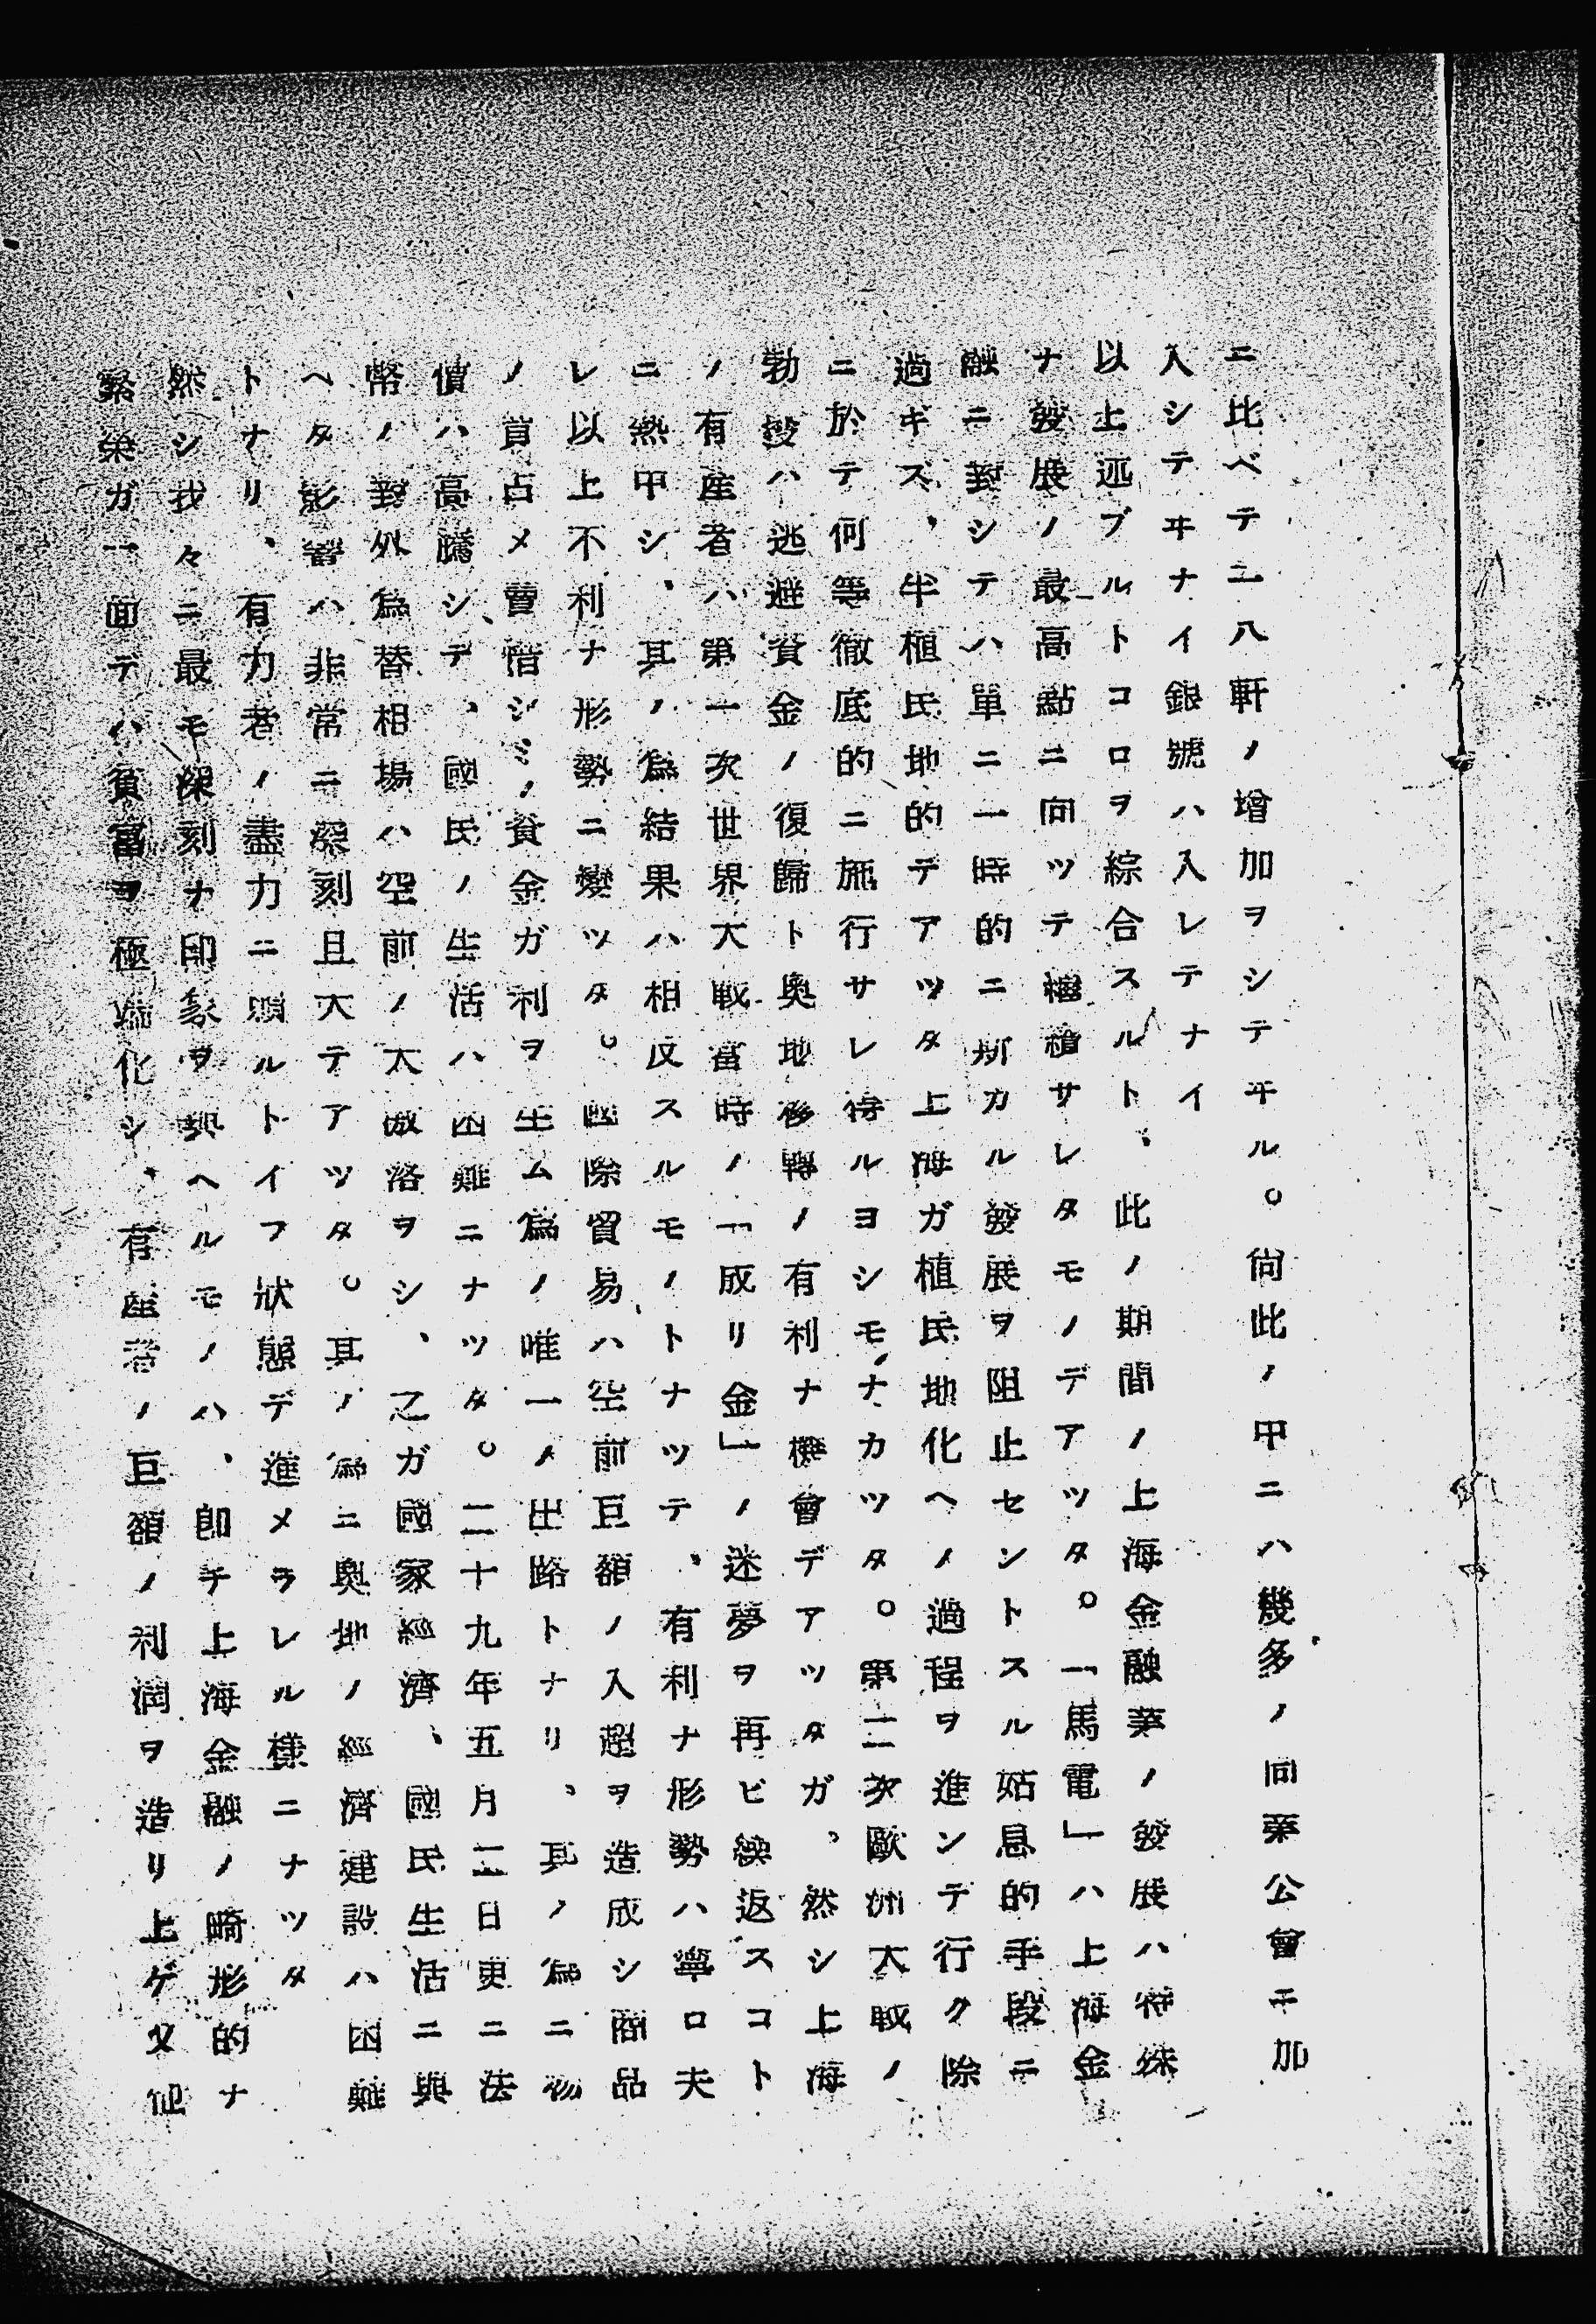 ニ比ベテ二八軒ノ增加ヲシテヰル。尙此ノ甲ニハ幾多ノ同業公會ニ加
入シテヰナイ銀號ハ入レテナイ
以上述ブルトコロヲ綜合スルト、此ノ期間ノ上海金融業ノ發展ハ特殊
ナ發展ノ最高點ニ向ツテ極積サレタモノデアツタ。「馬電」ハ上海金
融ニ對シテハ單ニ一時的ニ斯カル發展ヲ阻止セントスル姑息的手段ニ
過ギズ、半植民地的デアツタ上海ガ植民地化ヘノ過程ヲ進ンデ行ク際
ニ於テ何等徹底的ニ施行サレ得ルヨシモナカツタ。第二次歐洲大戰ノ
勃發ハ逃避資金ノ復歸ト奧地移轉ノ有利ナ機會デアツタガ、然シ上海
ノ有産者ハ第一次世界大戰當時ノ「成リ金」ノ迷夢ヲ再ビ繰返スコト
ニ熱甲シ、其ノ爲結果ハ相反スルモノトナツテ、有利ナ形勢ハ寧ロ夫
レ以上不利ナ形勢ニ變ツタ。國際貿易ハ空前巨額ノ入超ヲ造成シ商品
ノ買占メ賣惜シミノ資金ガ利ヲ生ム爲ノ唯一ノ出路トナリ、其ノ爲ニ物
價ハ高騰シテ、國民ノ生活ハ困難ニナツタ。二十九年五月二日更ニ法
幣ノ對外爲替相場ハ空前ノ大崩落ヲシ、之ガ國家經濟、國民生活ニ與
ヘタ影響ハ非常ニ深刻且大デアツタ。其ノ爲ニ奧地ノ經濟建設ハ困難
トナリ、有力者ノ盡力ニ賴ルトイフ狀態デ進メラレル樣ニナツタ
然シ我々ニ最モ深刻ナ印象ヲ與ヘルモノハ、卽チ上海金融ノ畸形的ナ
繁榮ガ一面デハ貧富ヲ極端化シ、有産者ノ巨額ノ利潤ヲ造リ上ゲ又他